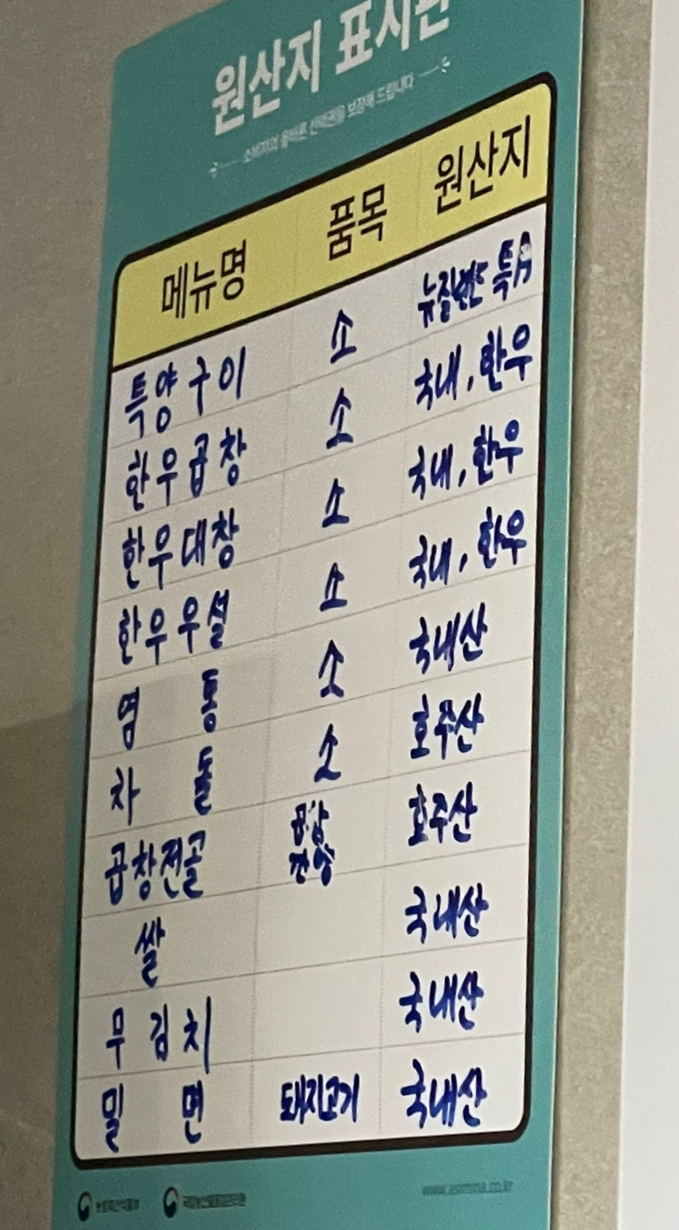 원산지 표시판
소비자의 올바른 선택권을 보장해 드립니다
메뉴명 품목 원산지
특양구이 소 뉴질랜드
한우곱창 소 국내, 한우
한우대창 소 국내, 한우
한우우설 소 국내, 한우
염통 소 국내산
차돌 소 호주산
곱창전골 호주산
쌀 국내산
무김치 국내산
밀면 돼지고기 국내산
농림축산식품부 국립농산물품질관리원